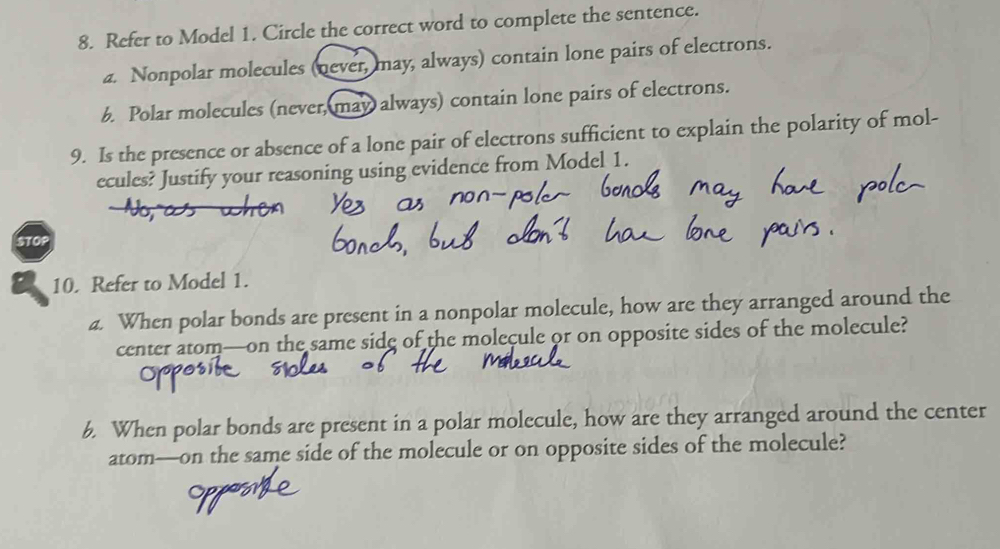 8. Refer to Model 1. Circle the correct word to complete the sentence.
a. Nonpolar molecules (never, may, always) contain lone pairs of electrons.
b. Polar molecules (never, may, always) contain lone pairs of electrons.
9. Is the presence or absence of a lone pair of electrons sufficient to explain the polarity of mol-
ecules? Justify your reasoning using evidence from Model 1.
No, as when Yes as non-polar bonds may have polar
bonds, but don't have lone pairs.
STOP
10. Refer to Model 1.
a. When polar bonds are present in a nonpolar molecule, how are they arranged around the
center atom—on the same side of the molecule or on opposite sides of the molecule?
opposite sides of the molecule
b. When polar bonds are present in a polar molecule, how are they arranged around the center
atom—on the same side of the molecule or on opposite sides of the molecule?
opposite